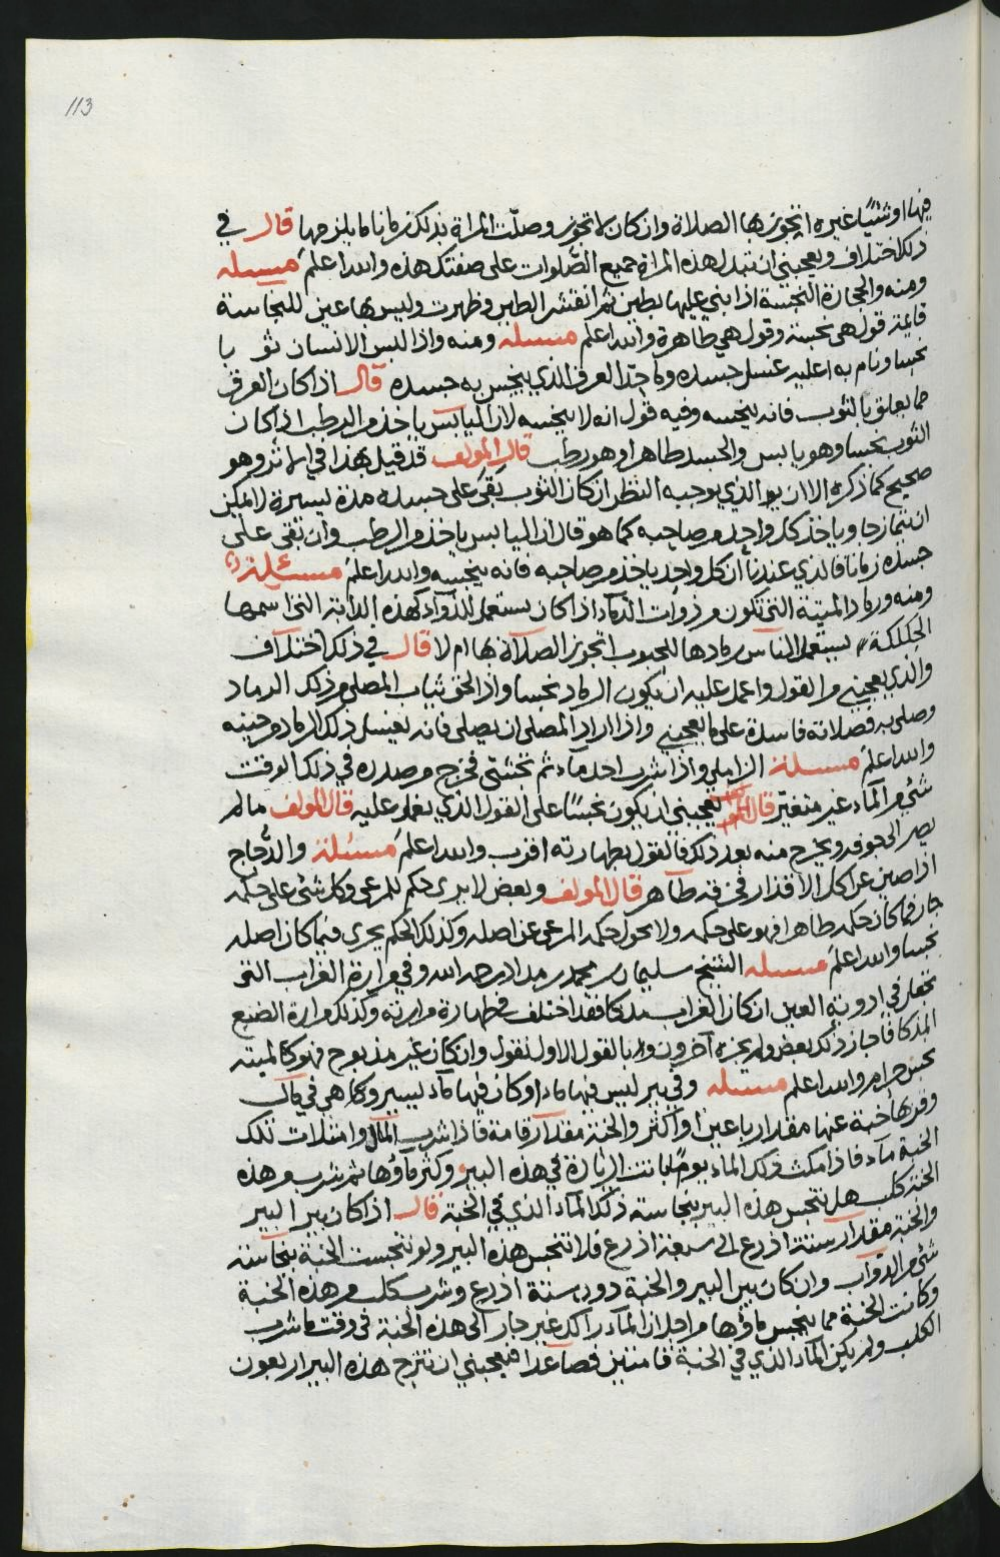 113
فيها او شيئا غيره اتجوز بها الصلاة وان كان لا تجوز وصلت المراة بذلك زمانا ما يلزمها قال في
ذلك اختلاف ويعجبني ان تبدل هذه المراة جميع الصلوات على صفتك هذه والله اعلم مسئلة
ومنه والحجارة النجسة اذا بني عليها بطين ثم انقشر الطين وظهرت وليس بها عين للنجاسة
قايمة قول هي نجسة وقول هي طاهرة والله اعلم مسئلة ومنه واذا لبس الانسان ثوبا
نجسا ونام به اعليه غسل جسده وما حد العرق الذي ينجس به جسده قال اذا كان العرق
مما يعلق بالثوب فانه ينجسه وفيه قول انه لا ينجسه لان اليابس ياخذ من الرطب اذا كان
الثوب نجسا وهو يابس والجسد طاهرا وهو رطب قال المولف قد قيل بهذا في الاثر وهو
صحيح كما ذكره الا ان الذي يوجبه النظر ان كان الثوب بقي على جسده مدة يسيرة لا يمكن
ان يتمازجا وياخذ كل واحد من صاحبه كما هو قال ان اليابس ياخذ من الرطب وان بقي على
جسده زمانا فالذي عندنا ان كل واحد ياخذ من صاحبه فانه ينجسه والله اعلم مسئلة
ومنه ورماد الميتة التي تكون من ذوات الدماء اذا كان يستعمل للدواء كهذه الدابة التي اسمها
الحلكلكة يستعمل الناس رمادها للحبوب اتجوز الصلاة بها ام لا قال في ذلك اختلاف
والذي يعجبني من القول واعمل عليه ان يكون الرماد نجسا واذا لحق ثياب المصلي من ذلك الرماد
وصلى به فصلاته فاسدة على ما يعجبني واذا اراد المصلي ان يصلي فانه يغسل ذلك الرماد من حينه
والله اعلم مسئلة الزاملي واذا شرب احد ماء ثم تجشى فخرج من صدره في ذلك الوقت
شيء من الماء غير متغير قال يعجبني ان يكون نجسا على القول الذي يعمل عليه قال المولف ما لم
يصر الى جوفه ويخرج منه بعد ذلك فالقول بطهارته اقرب والله اعلم مسئلة والدجاج
اذا صين عن اكل الاقذار فخزقه طاهر قال المولف وبعض لا يرى حكم للرعي وكل شيء على حكمه
جار فما كان حكمه طاهرا فهو على حكمه ولا يحول حكمه المرعى عن اصله وكذلك الحكم يجري فيما كان اصله
نجسا والله اعلم مسئلة الشيخ سليمان بن محمد بن مداد رحمه الله وفي مرارة الغراب التي
تجعل في ادوية العين ان كان الغراب مذكا فقد اختلف في طهارة مرارته وكذلك مرارة الضبع
المذكا فاجاز ذلك بعض ولم يجزه آخرون وانا بالقول الاول نقول وان كان غير مذبوح فهو كالميتة
نجس حرام والله اعلم مسئلة وفي بير ليس فيها ماء او كان فيها ماء يسير وكاهي في
وقربها خبة عنها مقدار باعين او اكثر والخبة مقدار قامة فاذا شرب المال وامتلات تلك
الخبة ماء فاذا مكث ذلك الماء يوما بانت الزيادة في هذه البير وكثر ماؤها ثم شرب من هذه
الخبة كلب هل تنجس هذه البير بنجاسة ذلك الماء الذي في الخبة قال اذا كان بين البير
والخبة مقدار ستة اذرع الى سبعة اذرع فلا تنجس هذه البير ولو تنجست الخبة بنجاسة
شيء من الدواب وان كان بين البير والخبة دون ستة اذرع وشرب كلب من هذه الخبة
وكانت الخبة مما ينجس ماؤها من اجل ان الماء راكد غير جار الى هذه الخبة في وقت ما شرب
الكلب ولم يكن الماء الذي في الخبة قامتين فصاعدا فيعجبني ان تنزح هذه البير اربعون